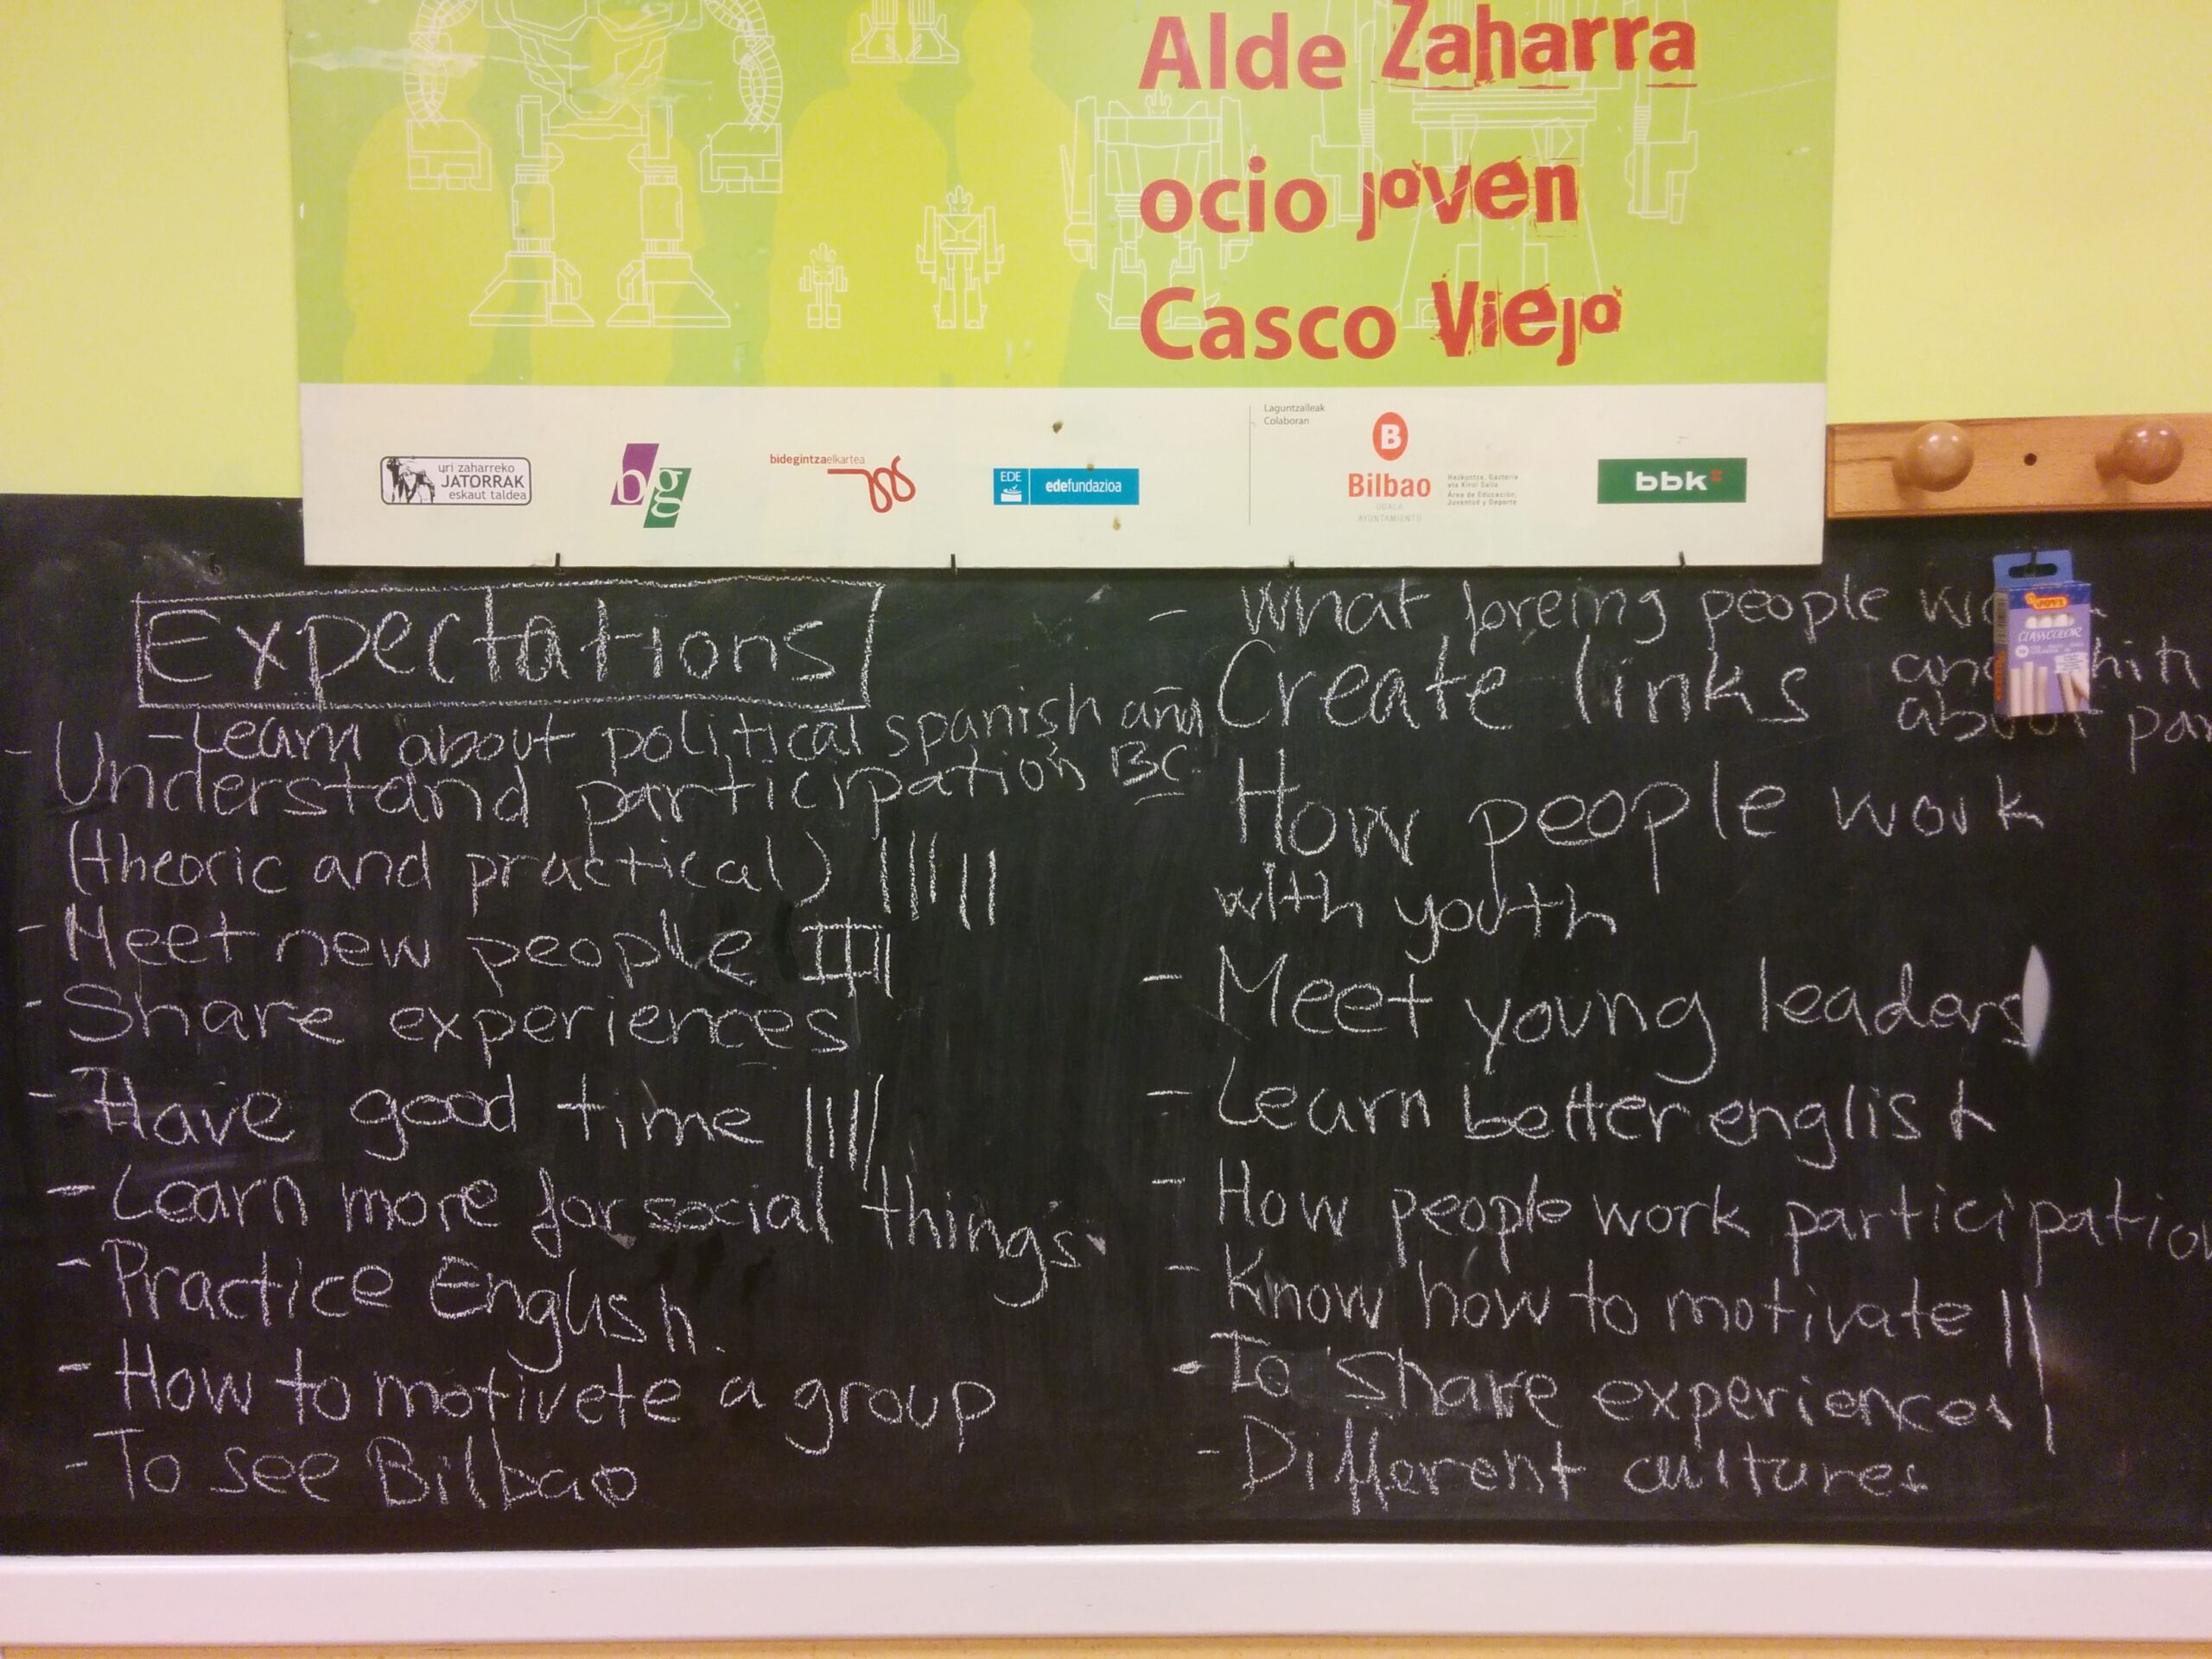 Alde Zaharra
ocio joven
Casco Viejo
uri zaharreko
JATORRAK
eskaut taldea
bg
bidegintzaelkartea
EDE
edefundazioa
Laguntzaileak
Colaboran
B
Bilbao
UDALA
AYUNTAMIENTO
Hezkuntza, Gazteria
eta Kirol Saila
Área de Educación,
Juventud y Deporte
bbk
Expectations
- Learn about political spanish and
BC
- Understand participation
(theoric and practical) ||||||
- Meet new people
- Share experiences
- Have good time ||||/
- Learn more for social things
- Practice English.
- How to motivete a group
- To see Bilbao
- What foreing people
Create links
about
How people work
with youth
- Meet young leaders
- Learn better english
- How people work participation
- Know how to motivate ||
- To share experiences |
- Different cultures
CLASSCOLOR